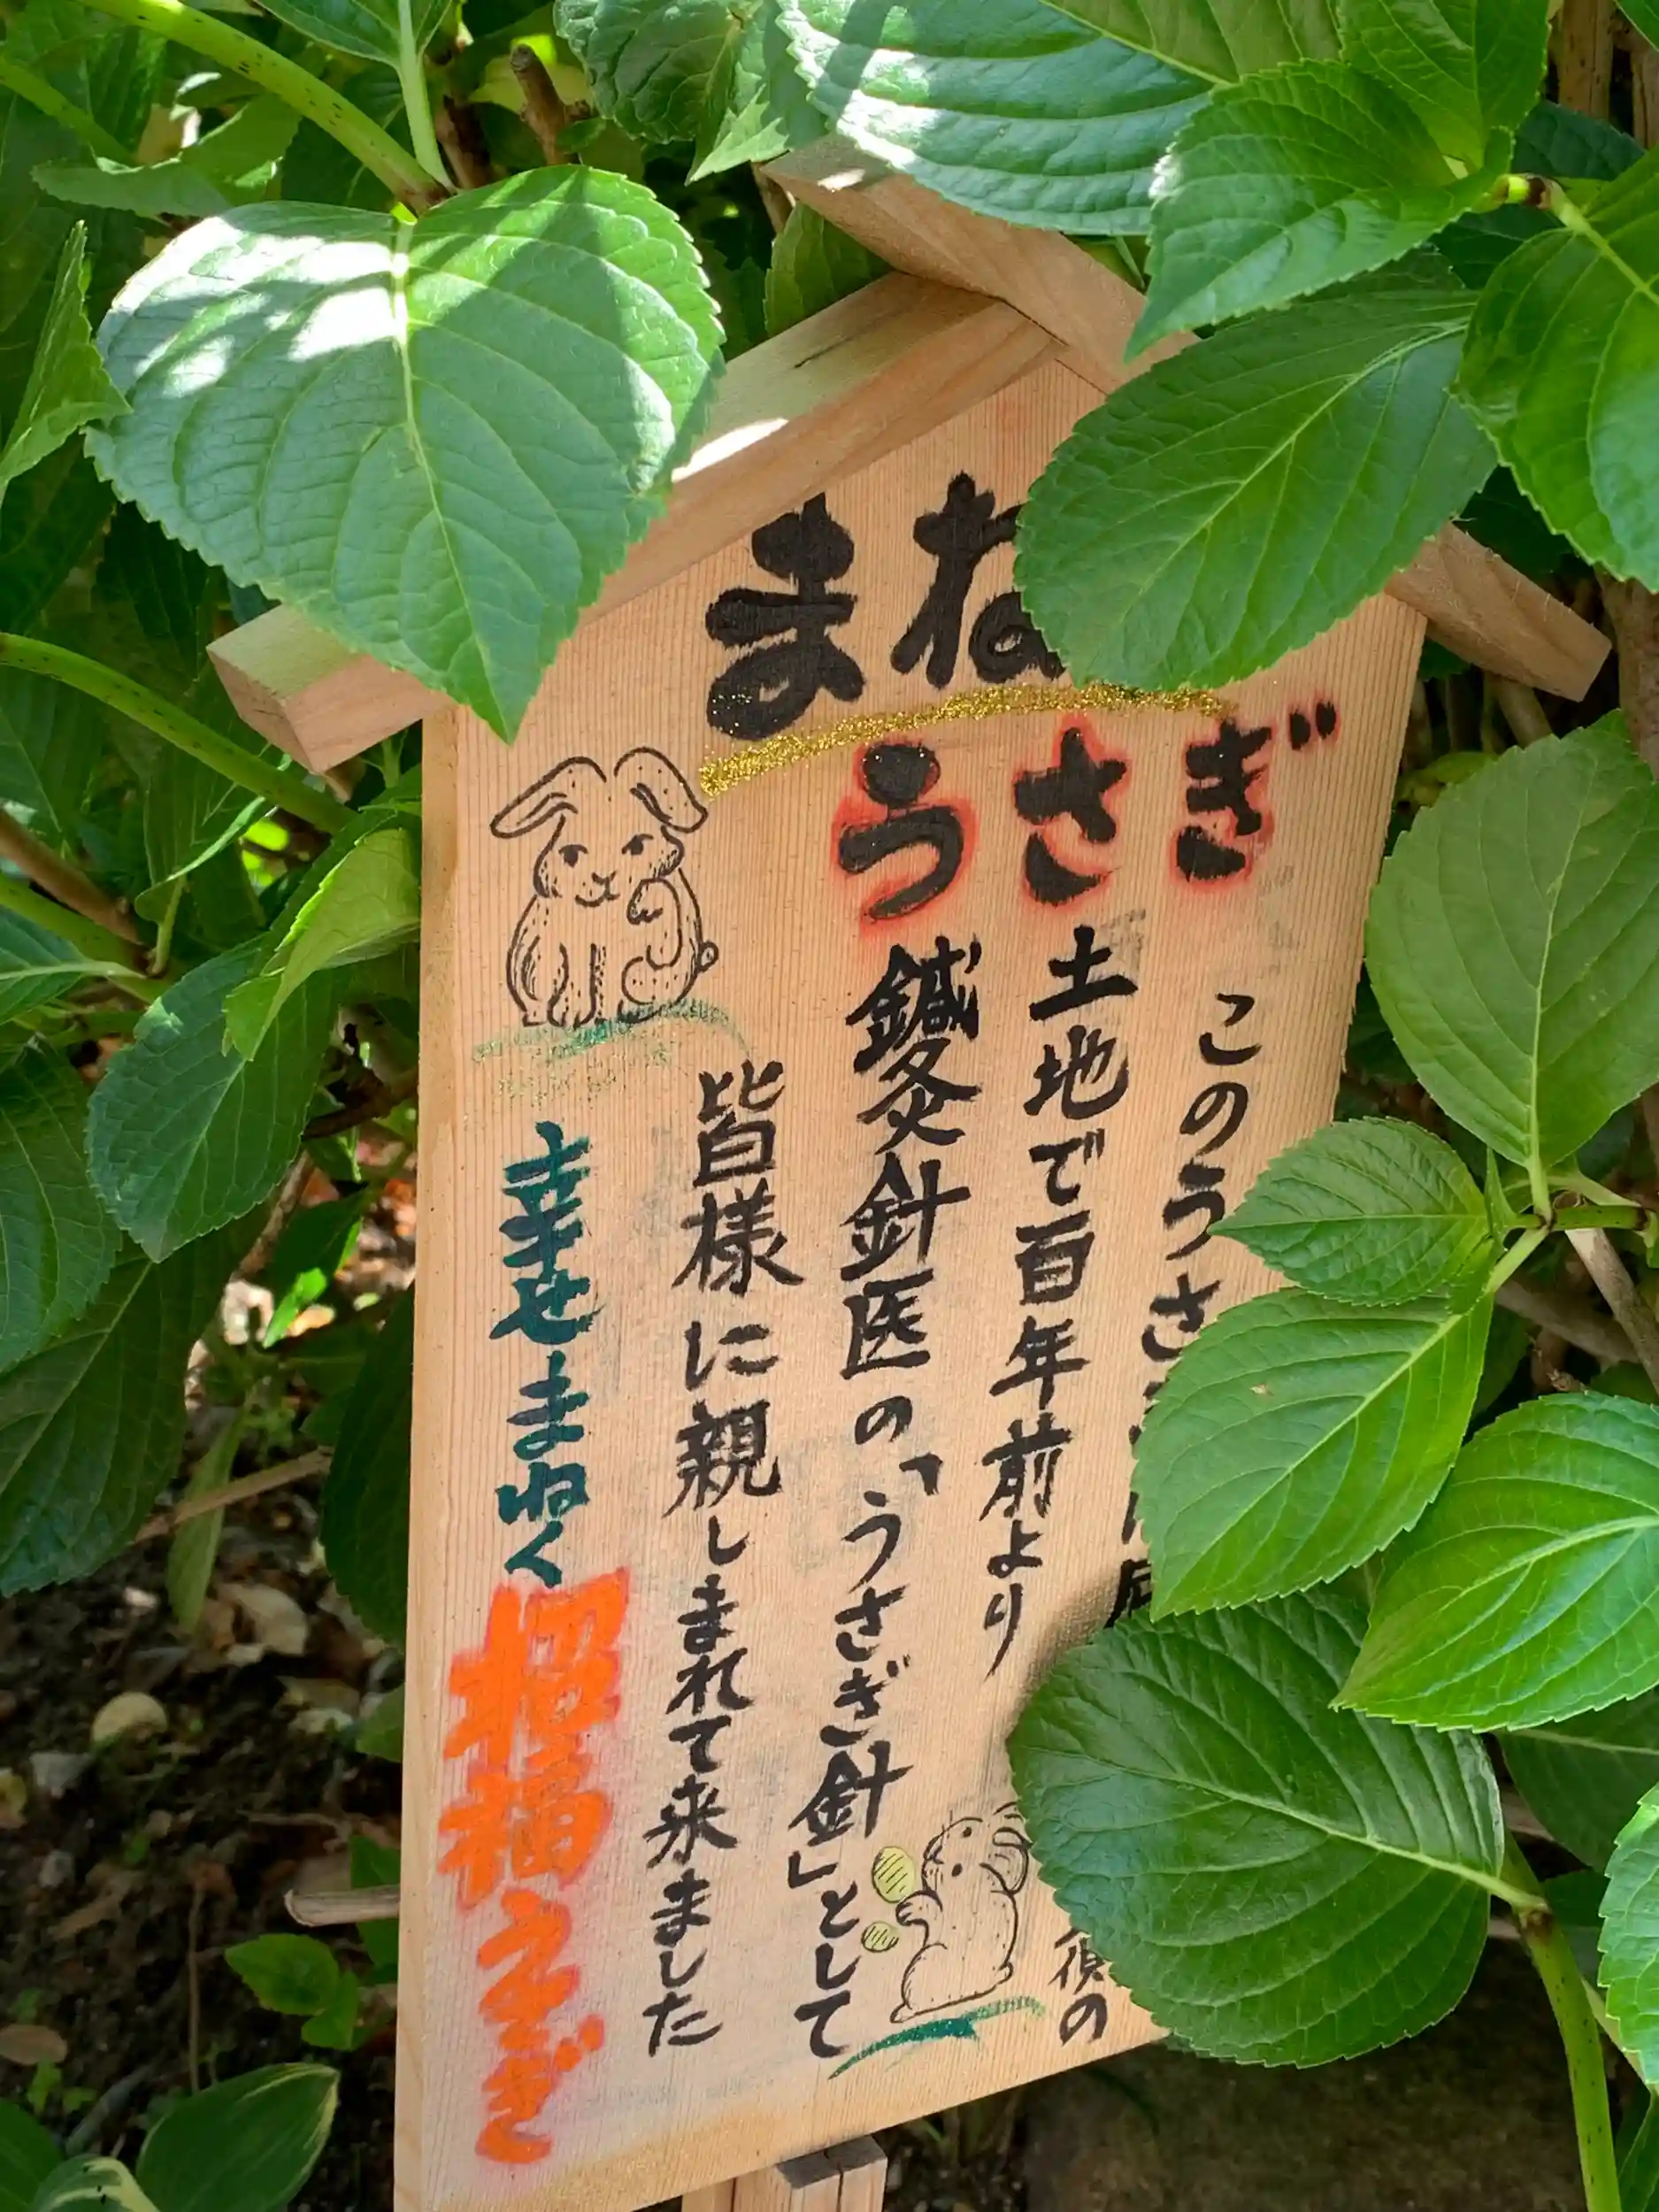 まね
うさぎ
このうさ
の
土地で百年前より
鍼灸針医の「うさぎ針」として
皆様に親しまれて来ました
幸せまねく招福うさぎ